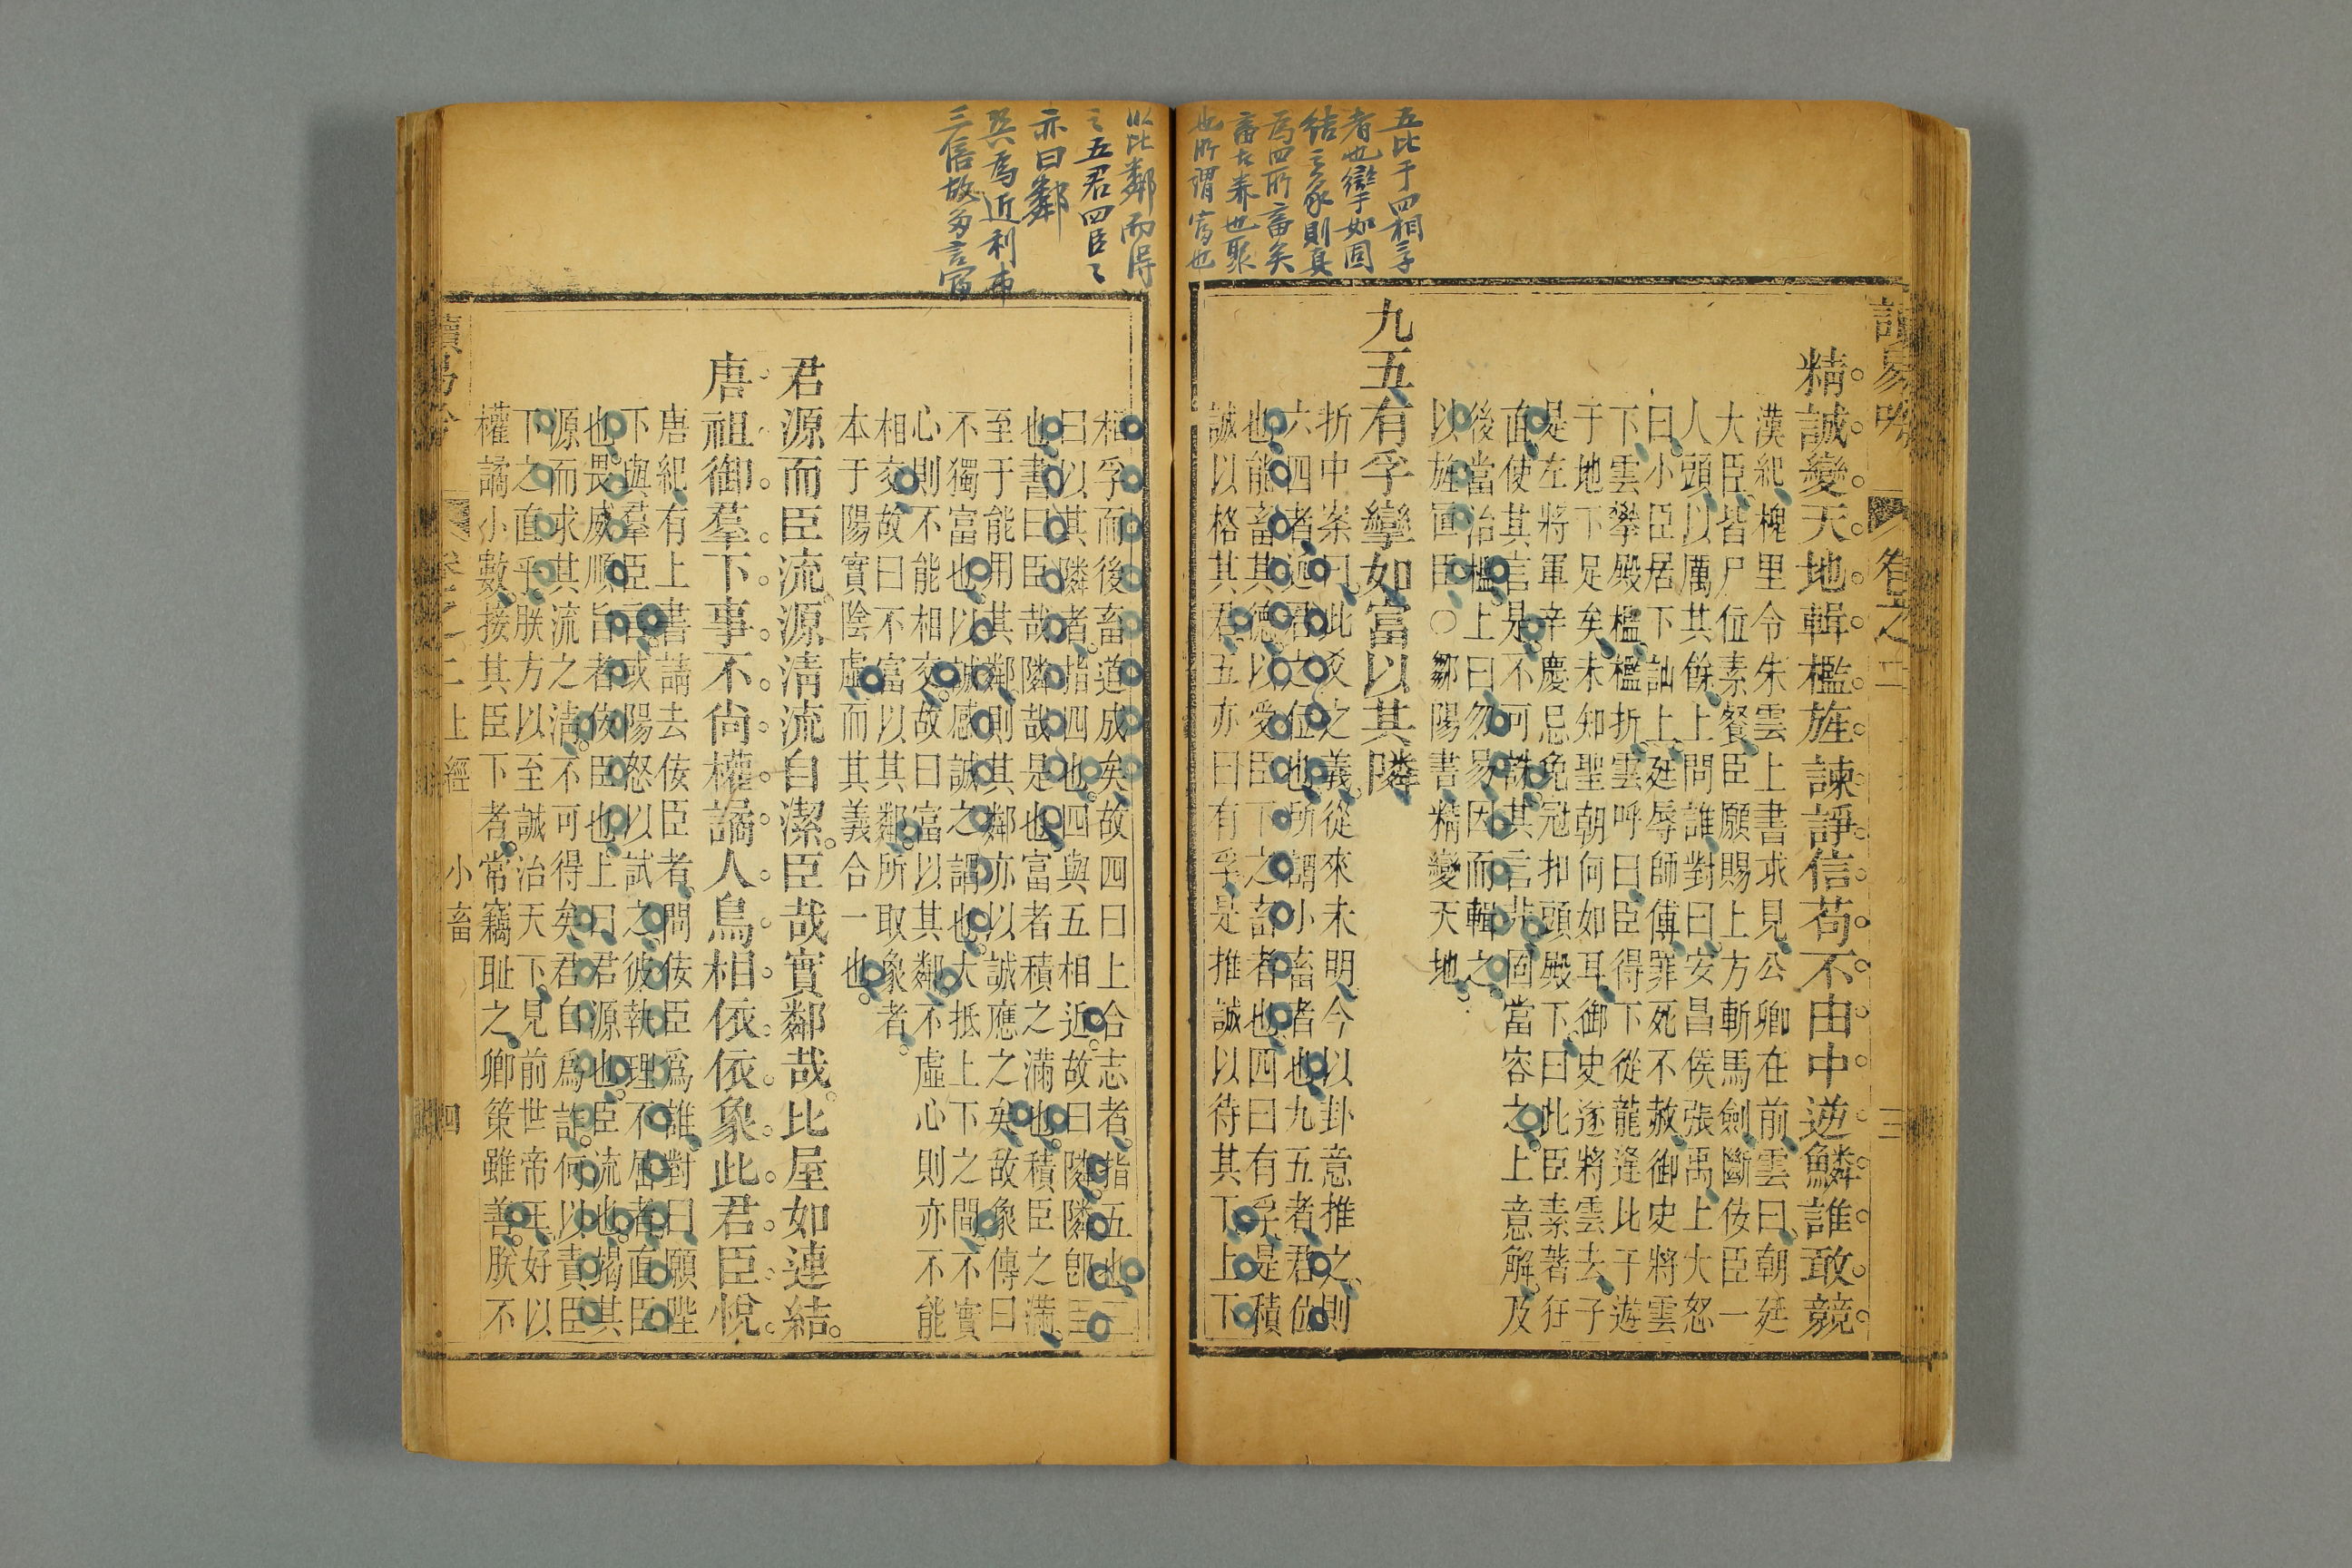 五比于四相孚
者也攣如固
結之象則真
為四所畜矣
畜者養也聚
也所謂富也
讀易吟
卷之二
三
精誠變天地輯檻旌諫諍信苟不由中逆鱗誰敢競
漢紀槐里令朱雲上書求見公卿在前雲曰朝廷
大臣皆尸位素餐臣願賜上方斬馬劍斷佞臣一
人頭以厲其餘上問誰對曰安昌侯張禹上大怒
曰小臣居下訕上廷辱師傅罪死不赦御史將雲
下雲攀殿檻檻折雲呼曰臣得下從龍逢比干遊
于地下足矣未知聖朝何如耳御史遂將雲去于
是左將軍辛慶忌免冠扣頭殿下曰此臣素著狂
直使其言是不可誅其言非固當容之上意解及
後當治檻上曰勿易因而輯之
以旌直臣○鄒陽書精變天地
九五有孚攣如富以其隣
折中案曰此爻之義從來未明今以卦意推之則
六四者近君之位也所謂小畜者也九五者君位
也能畜其德以受臣下之畜者也四曰有孚是積
誠以格其君五亦曰有孚是推誠以待其下上下
以比鄰而得
之五君四臣臣
亦曰鄰
巽為近利市
三倍故多言富
相孚而後畜道成矣故四曰上合志者指五也五
曰以其隣者指四也四與五相近故曰隣隣卽臣
也書曰臣哉隣哉是也富者積之滿也積臣之滿
至于能用其鄰則其鄰亦以誠應之矣故象傳曰
不獨富也以誠感誠之謂也大抵上下之間不實
心則不能相交故曰富以其鄰不虛心則亦不能
相交故曰不富以其鄰所取象者
本于陽實陰虛而其義合一也
君源而臣流源清流自潔臣哉實鄰哉比屋如連結
唐祖御羣下事不尙權譎人鳥相依依象此君臣悅
唐紀有上書請去佞臣者問佞臣爲誰對曰願陛
下與羣臣言或陽怒以試之彼執理不屈者直臣
也畏威順旨者佞臣也上曰君源也臣流也濁其
源而求其流之清不可得矣君自爲詐何以責臣
下之直乎朕方以至誠治天下見前世帝王好以
權譎小數接其臣下者常竊耻之卿策雖善朕不
讀易吟
卷之二上經
小畜
四